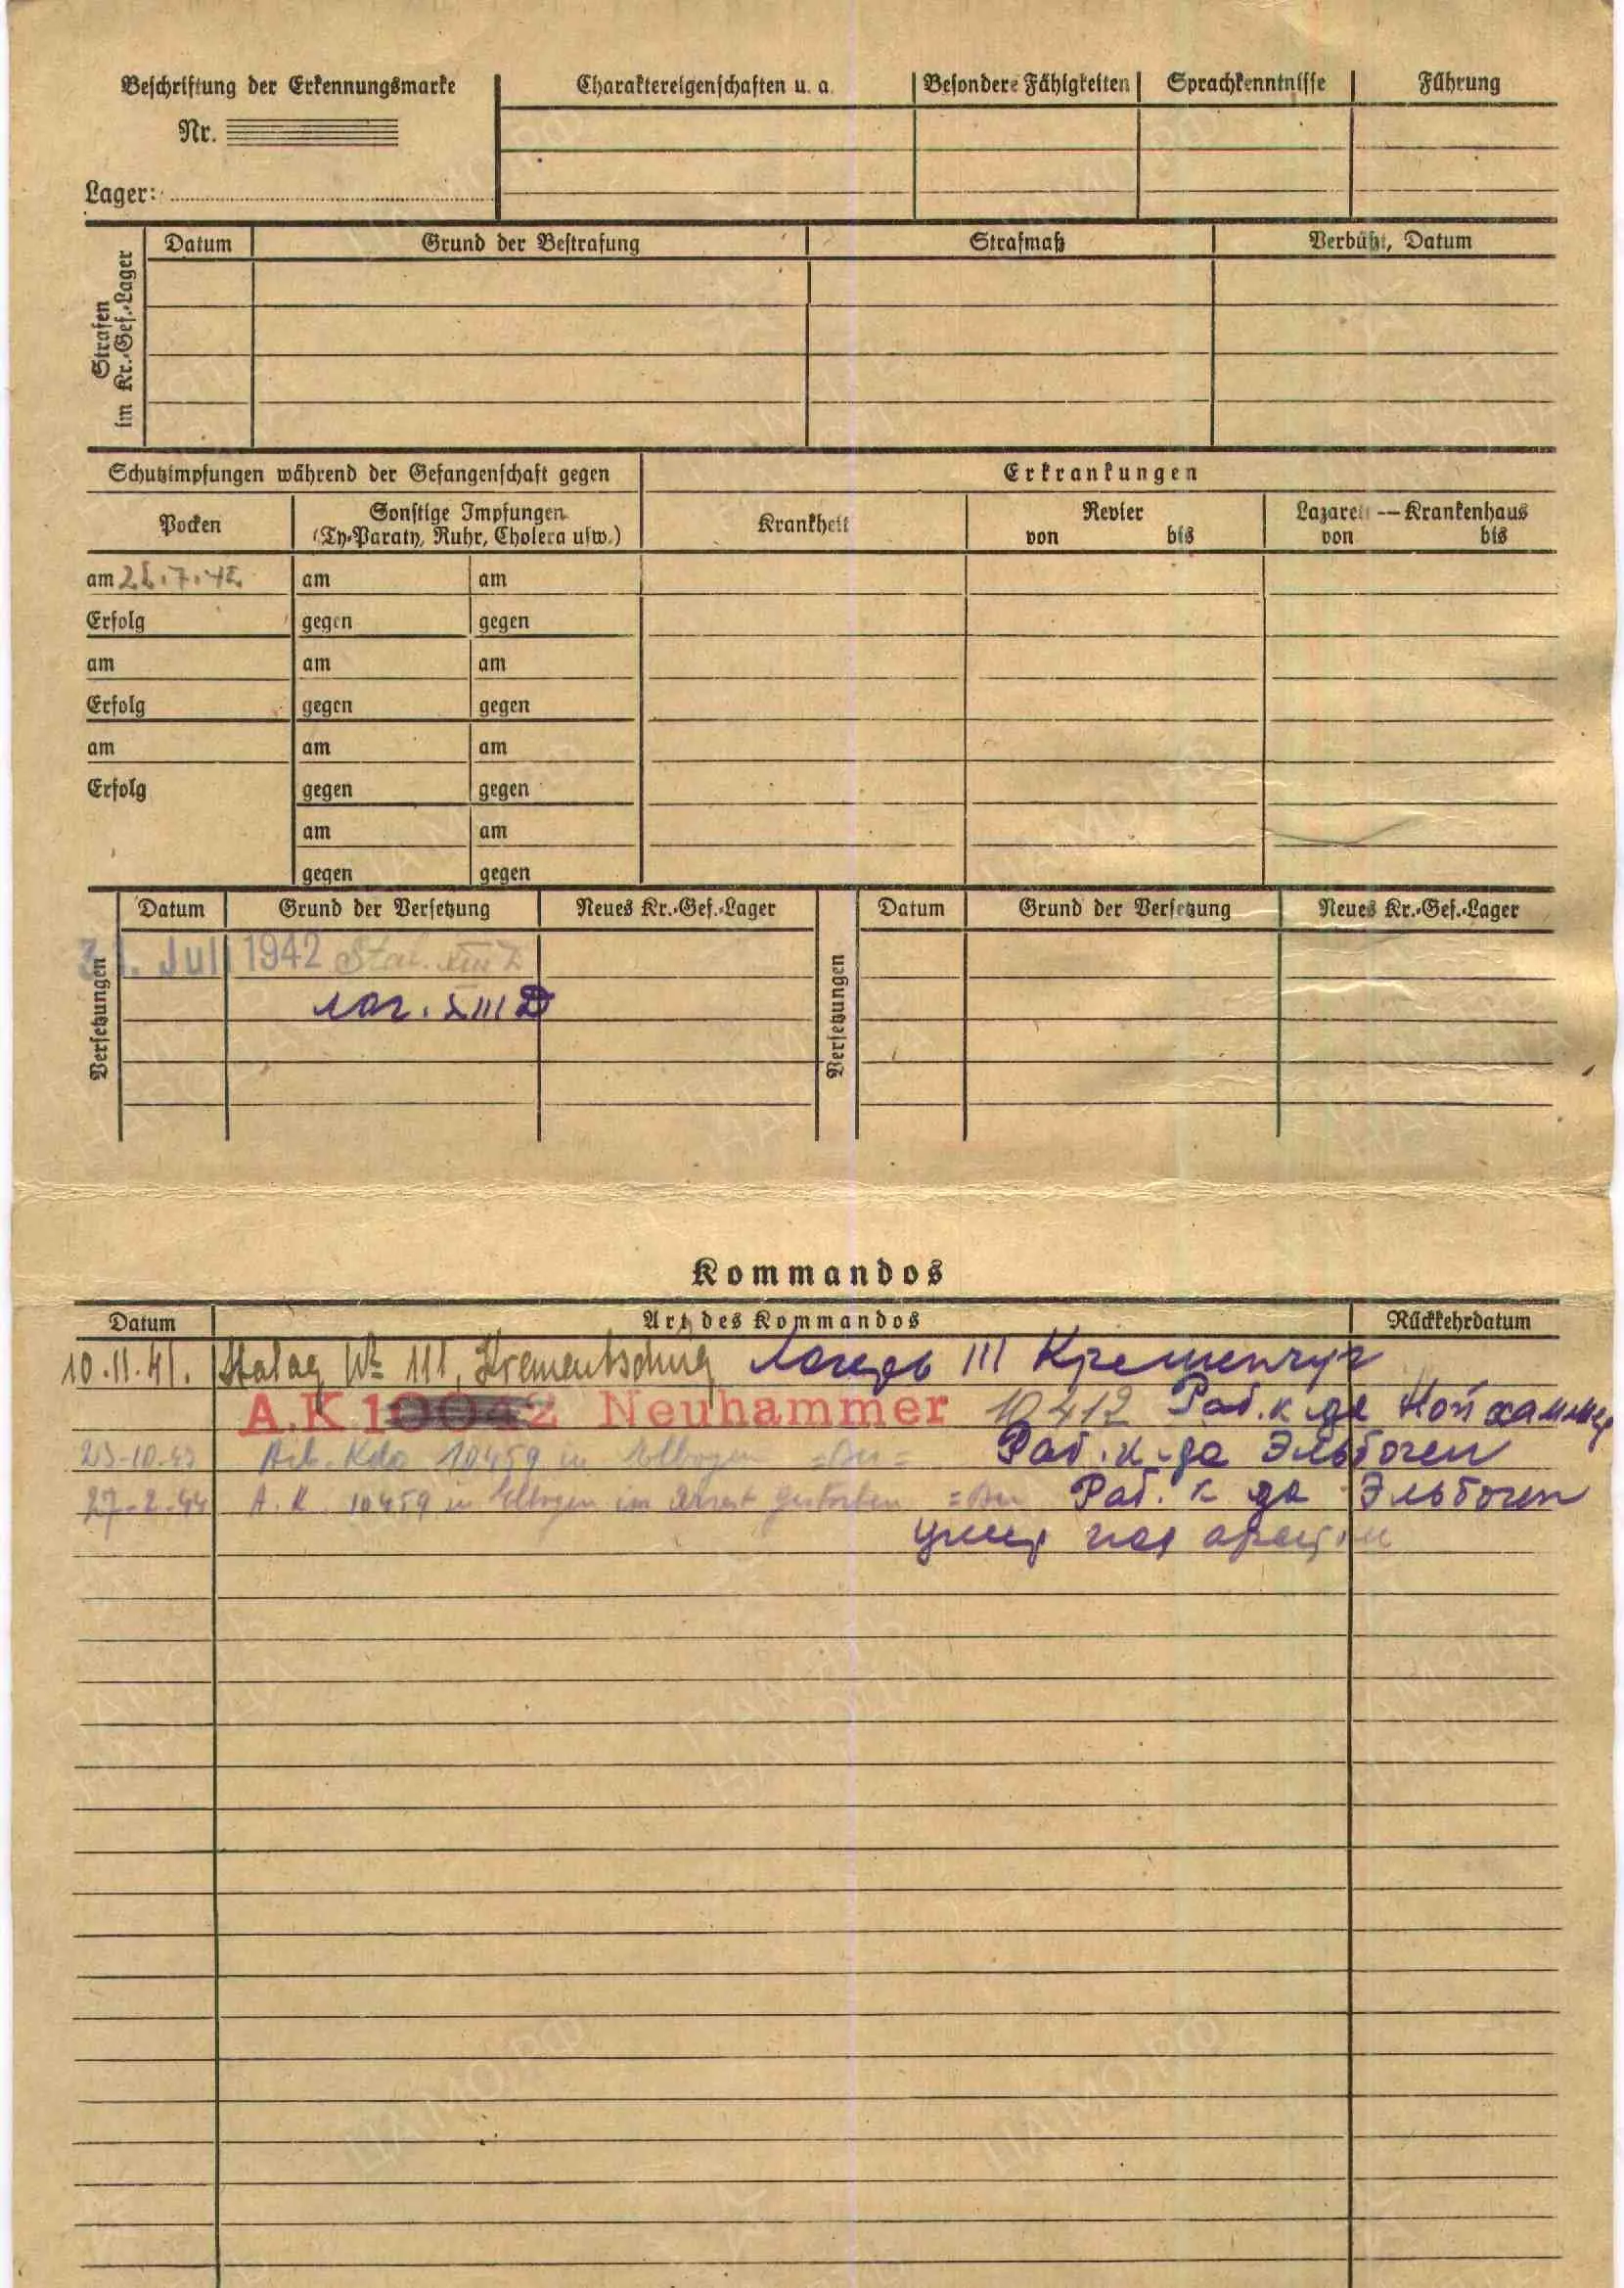 Beschriftung der Erkennungsmarke
Nr.
Lager:
Charaktereigenschaften u. a.
Besondere Fähigkeiten
Sprachkenntnisse
Führung
Strafen
im Kr.-Gef.-Lager
Datum
Grund der Bestrafung
Strafmaß
Verbüßt, Datum
Schutzimpfungen während der Gefangenschaft gegen
Erkrankungen
Pocken
Sonstige Impfungen
(Ty-Paraty, Ruhr, Cholera usw.)
Krankheit
Revier
von bis
Lazarett — Krankenhaus
von bis
am .7.42 am am
Erfolg gegen gegen
am am am
Erfolg gegen gegen
am am am
Erfolg gegen gegen
am am
gegen gegen
Versetzungen
Datum Grund der Versetzung Neues Kr.-Gef.-Lager
31. Juli 1942 Stal. XIII
лаг. XIII D
Versetzungen
Datum Grund der Versetzung Neues Kr.-Gef.-Lager
Kommandos
Datum Art des Kommandos Rückkehrdatum
10.11.41. Stalag № 111, Krementschug Лагерь III Кременчуг
A.K 10042 Neuhammer 10412 Раб. к-да Нойхаммер
10.43 Arb. Kdo 10459 in Elbogen Раб. к-да Эльбоген
27.2.44 A. K. 10459 in Elbogen im Arrest gestorben Раб. к-да Эльбоген
умер под арестом